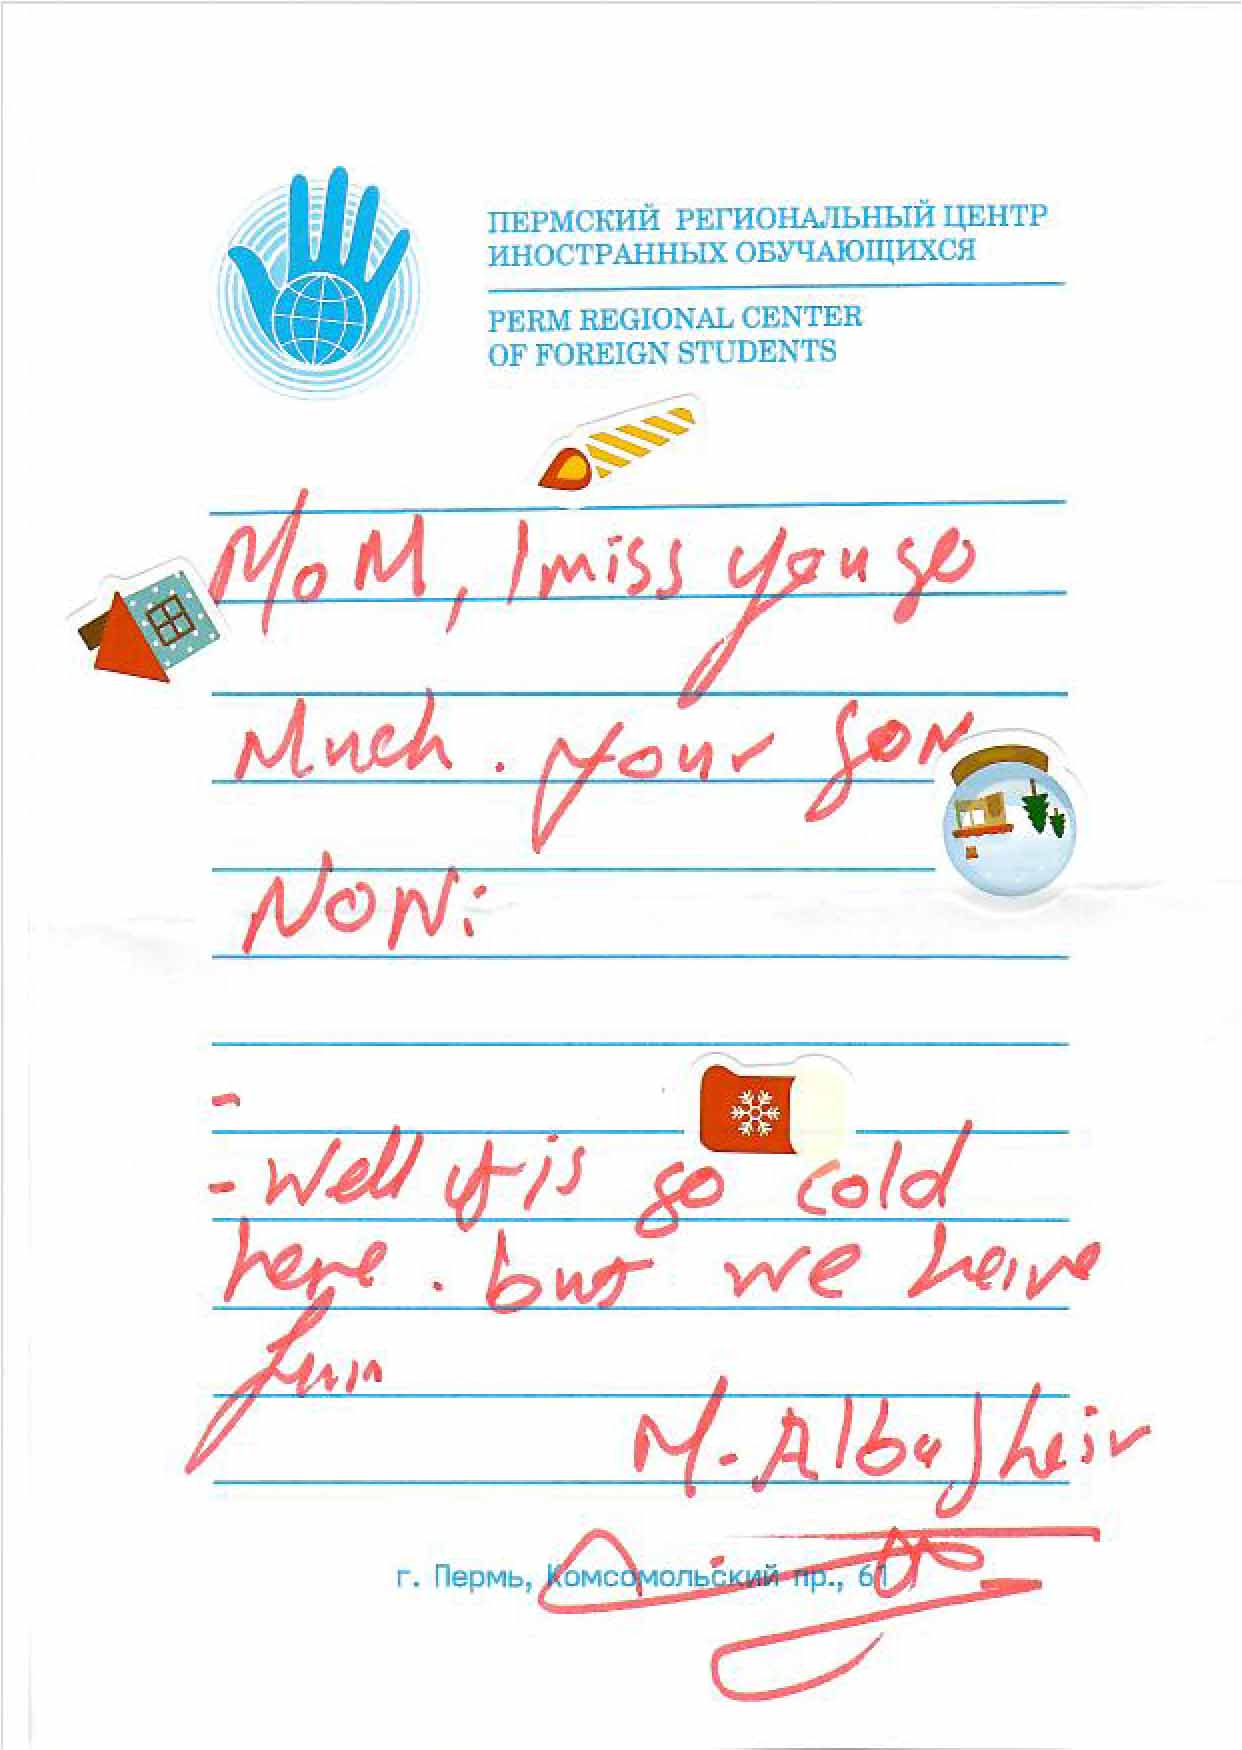 ПЕРМСКИЙ РЕГИОНАЛЬНЫЙ ЦЕНТР
ИНОСТРАННЫХ ОБУЧАЮЩИХСЯ
PERM REGIONAL CENTER
OF FOREIGN STUDENTS
MoM, I miss you so
Much. your son
NON:
-
- Well it is so cold
here. but we have
fun
M. Albagheir
г. Пермь, Комсомольский пр., 61